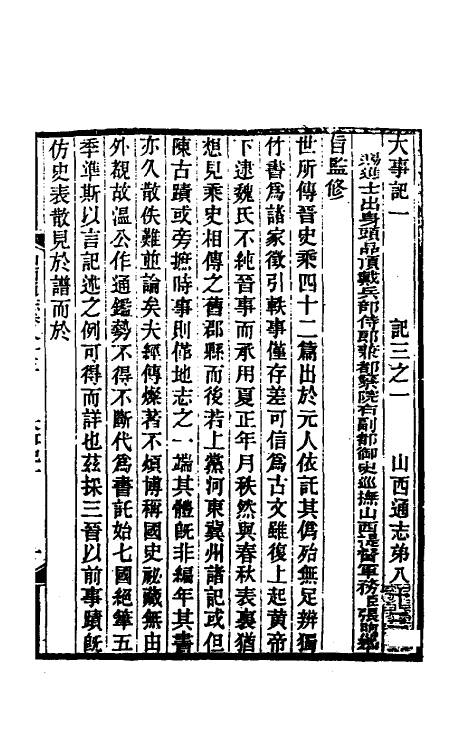 大事記一　記三之一　山西通志第八十
賜進士出身頭品頂戴兵部侍郎兼都察院右副都御史巡撫山西提督軍務臣張煦奉
旨監修
世所傳晉史乘四十二篇出於元人依託其僞殆無足辨獨
竹書爲諸家徵引軼事僅存差可信爲古文雖復上起黃帝
下逮魏氏不純晉事而承用夏正年月秩然與春秋表裏猶
想見乘史相傳之舊郡縣而後若上黨河東冀州諸記或但
陳古蹟或旁摭時事則僅地志之一端其體旣非編年其書
亦久散佚難並論矣夫經傳燦著不煩博稱國史祕藏無由
外觀故溫公作通鑑勢不得不斷代爲書託始七國絕筆五
季準斯以言記述之例可得而詳也茲採三晉以前事蹟旣
仿史表散見於譜而於